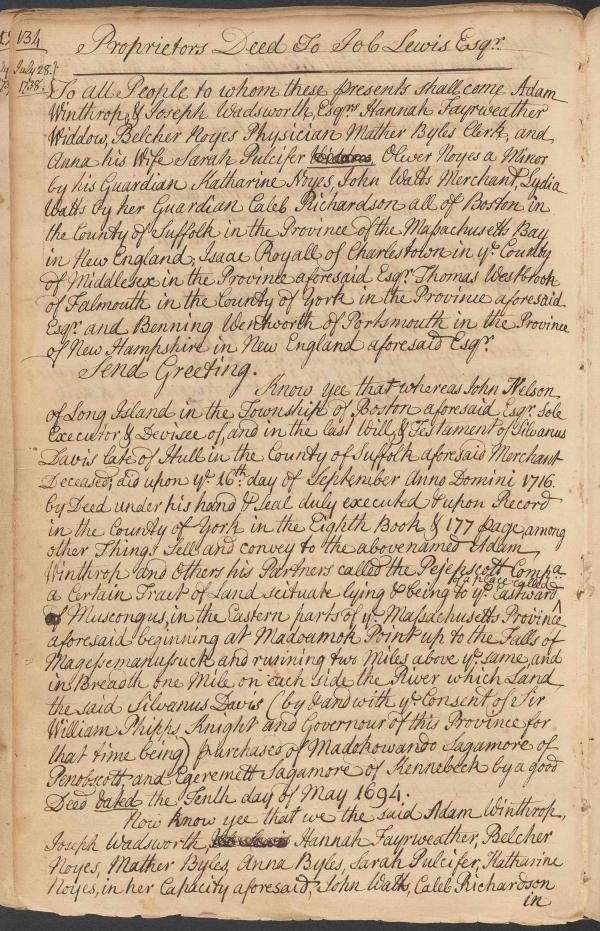 134
Proprietors Deed To Job Lewis Esqr.
July 28.
1738.
To all People to whom these presents shall come Adam
Winthrop, & Joseph Wadsworth, Esqrs Hannah Fayrweather
Widdow, Belcher Noyes Physician Mather Byles Clerk, and
Anna his Wife Sarah Pulcifer Oliver Noyes a Minor
by his Guardian Katharine Noyes, John Watts Merchant, Lydia
Watts by her Guardian Caleb Richardson all of Boston in
the County of Suffolk in the Province of the Massachusetts Bay
in New England, Isaac Royall of Charlestown in ye. County
of Middlesex in the Province aforesaid Esqr. Thomas Westbrook
of Falmouth in the County of York in the Province aforesaid
Esqr. and Benning Wentworth of Portsmouth in the Province
of New Hampshire in New England aforesaid Esqr.
Send Greeting.
Know yee that whereas John Nelson
of Long Island in the Township of Boston aforesaid Esqr. Sole
Executor & Devisee of, and in the last Will, & Testament of Silvanus
Davis late of Hull in the County of Suffolk aforesaid Merchant
Deceased, did upon ye. 16th day of September Anno Domini 1716.
by Deed under his hand & Seal duly executed & upon Record
in the County of York in the Eighth Book & 177 page, among
other Things Sell and convey to the abovenamed Adam
Winthrop and Others his Partners called the Pejepscott Compa.
a Certain Tract of Land scituate lying & being to ye. Eastward
of a place called
of Muscongus, in the Eastern parts of ye. Massachusetts Province
aforesaid beginning at Madoamok Point up to the Falls of
Magessemanussuck and running two Miles above ye. same, and
in Breadth One Mile on each side the River which Land
the said Silvanus Davis (by & and with ye. Consent of Sir
William Phipps, Knight and Governour of this Province for
that time being) purchased of Madokowando Sagamore of
Penobscott, and Egeremett Sagamore of Kennebeck by a good
Deed dated the Tenth day of May 1694.
Now know yee that we the said Adam Winthrop,
Joseph Wadsworth, Hannah Fayrweather, Belcher
Noyes, Mather Byles, Anna Byles, Sarah Pulcifer, Katharine
Noyes, in her Capacity aforesaid, John Watts, Caleb Richardson
in